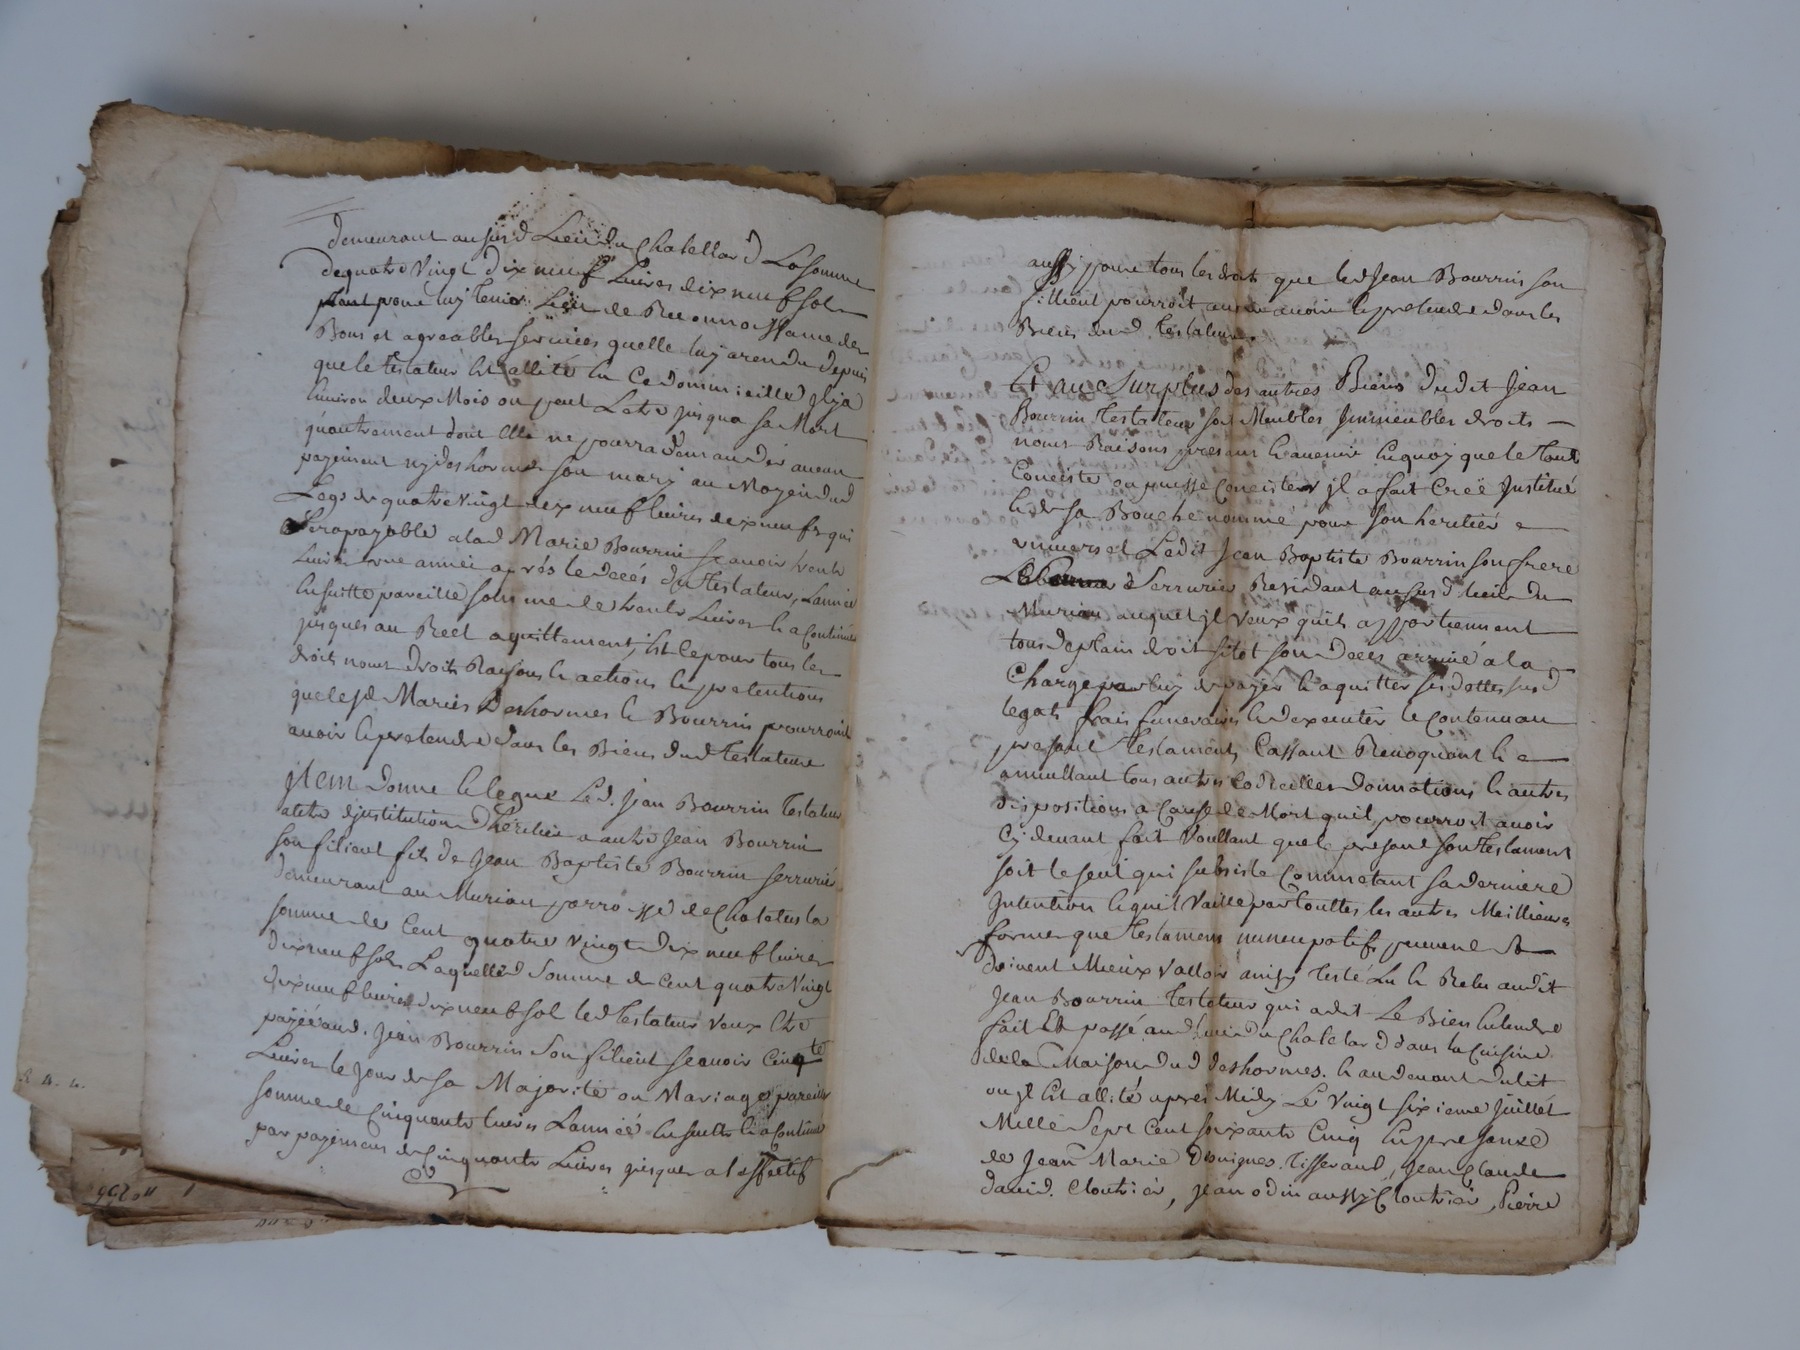 demeurant au susd Lieu du Chatellard La Somme
de quatre Vingt dix neuf Livres dix neuf sols
tant pour luy tenir Lieu de Reconnoissance des
Bons et agreables services quelle luy a rendu depuis
que le testateur Est allité En Ce domicille d jl y a
Environ deux Mois ou peut Letre jusqua sa Mort
quautrement dont Elle ne pourra demander aucun
payement ny deshormes son mary au Moyen dud
Legs de quatre Vingt dix neuf livres dix neuf s qui
sera payable a lad Marie Bourrin sçavoir trente
Livres une année après le decés du testateur, Lannée
En suitte pareille somme de trente Livres Et a Continuer
jusques au Reel aquittement, Est Ce pour tous les
droits noms droits Raisons Et actions Et pretentions
que les d Mariés Deshormes Et Bourrin pourroient
avoir Et pretendre dans les Biens dud Testateur
jtem donne Et legue Led. Jean Bourrin Testateur
a titre djnstitution d'heritier a autre Jean Bourrin
son filieul fils de Jean Baptiste Bourrin serrurier
demeurant au Murian parroisse de Chatelus la
somme de Cent quatre Vingt dix neuf livres
dix neuf sols Laquelle d Somme de Cent quatre Vingt
dix neuf livres dix neuf sol led testateur Veux Etre
payéé aud. Jean Bourrin Son filieul sçavoir Cinq.te
Livres le Jour de sa Majorité ou Mariage pareille
somme de Cinquante livres Lannéé En suitte Et a Continuer
par payemens de Cinquante Livres jusques a l'effectif
aussy pour tous les droits que led Jean Bourrin son
fillieul pourroit avoir Et pretendre dans les
Biens dud. testateur.
Et au Surplus des autres Biens dudit Jean
Bourrin testateur soit Meubles Jmmeubles droits
noms Raisons presens Et avenir En quoy que le tout
Conciste ou puisse Concister jl a fait Creé Jnstitué
Et de sa Bouche nommé pour son heritier
universel Ledit Jean Baptiste Bourrin son frere
Serrurier Residant au susd lieu du
Murian auquel jl Veux quils appartiennent
tous de plain droit sitot son deces arrivé a la
Charge par luy de payer Et aquitter ses dettes susd
legats frais funeraires Et d'executer le Contenu au
presant testament, Cassant Revoquant Et
annullant tous autres Codicilles donnations Et autres
dispositions a Cause de Mort quil pourroit avoir
Cy devant fait Voullant que le presant son testament
soit le seul qui subsiste Comme etant sa derniere
Jntention Et quil Vaille par touttes les autres Meillieures
formes que testamens nuncupatifs peuvent Et
doivent Mieux Valloir ainsy testé Lu Et Relu audit
Jean Bourrin testateur qui a dit Le Bien Entendre
fait Et passé aud lieu du Chatelard dans la Cuisine
de la Maison dud deshormes. Et au devant du lit
ou jl Est allité apres Midy Le Vingt sixieme Juillet
Mille Sept Cent soixante Cinq En presance
de Jean Marie Tisserand, Jean Claude
david. Cloutrier, Jean odin aussy Cloutrier, Pierre